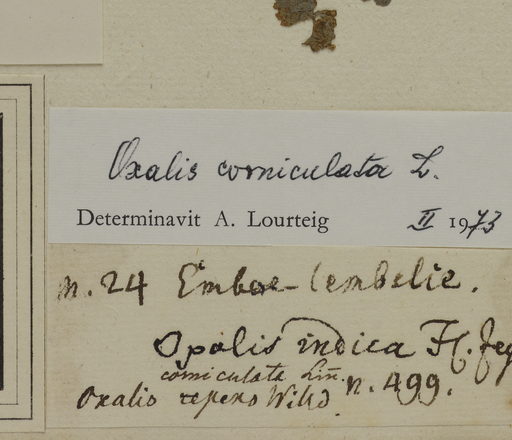 Oxalis corniculata L.
Determinavit A. Lourteig II 1973
n. 24 Embae-lembelie.
Oxalis indica Fl. Zey
corniculata Lin. n. 499.
Oxalis repens Willd